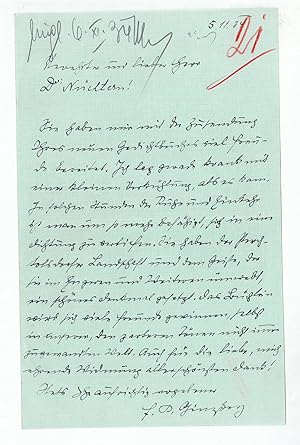 5.11.34
Verehrter und lieber Herr
Dr Nüchtern!
Sie haben mir mit der Zusendung
Ihres neuen Gedichtbuches viel Freu-
de bereitet. Ich lag gerade krank mit
einer kleinen Vergiftung, als es kam.
In solchen Stunden der Ruhe und Einkehr
ist man umso mehr befähigt, sich in eine
Dichtung zu vertiefen. Sie haben der
Landschaft und dem Geiste, der
sie im Engeren und Weiteren umwebt,
ein schönes Denkmal gesetzt. Das Büchlein
wird sich viele Freunde gewinnen, selbst
in unserer, den zarteren Tönen nicht immer
zugewandten Welt. Auch für die liebe, mich
ehrende Widmung allerschönsten Dank!
Stets Ihr aufrichtig ergebener
F. K. Ginzkey